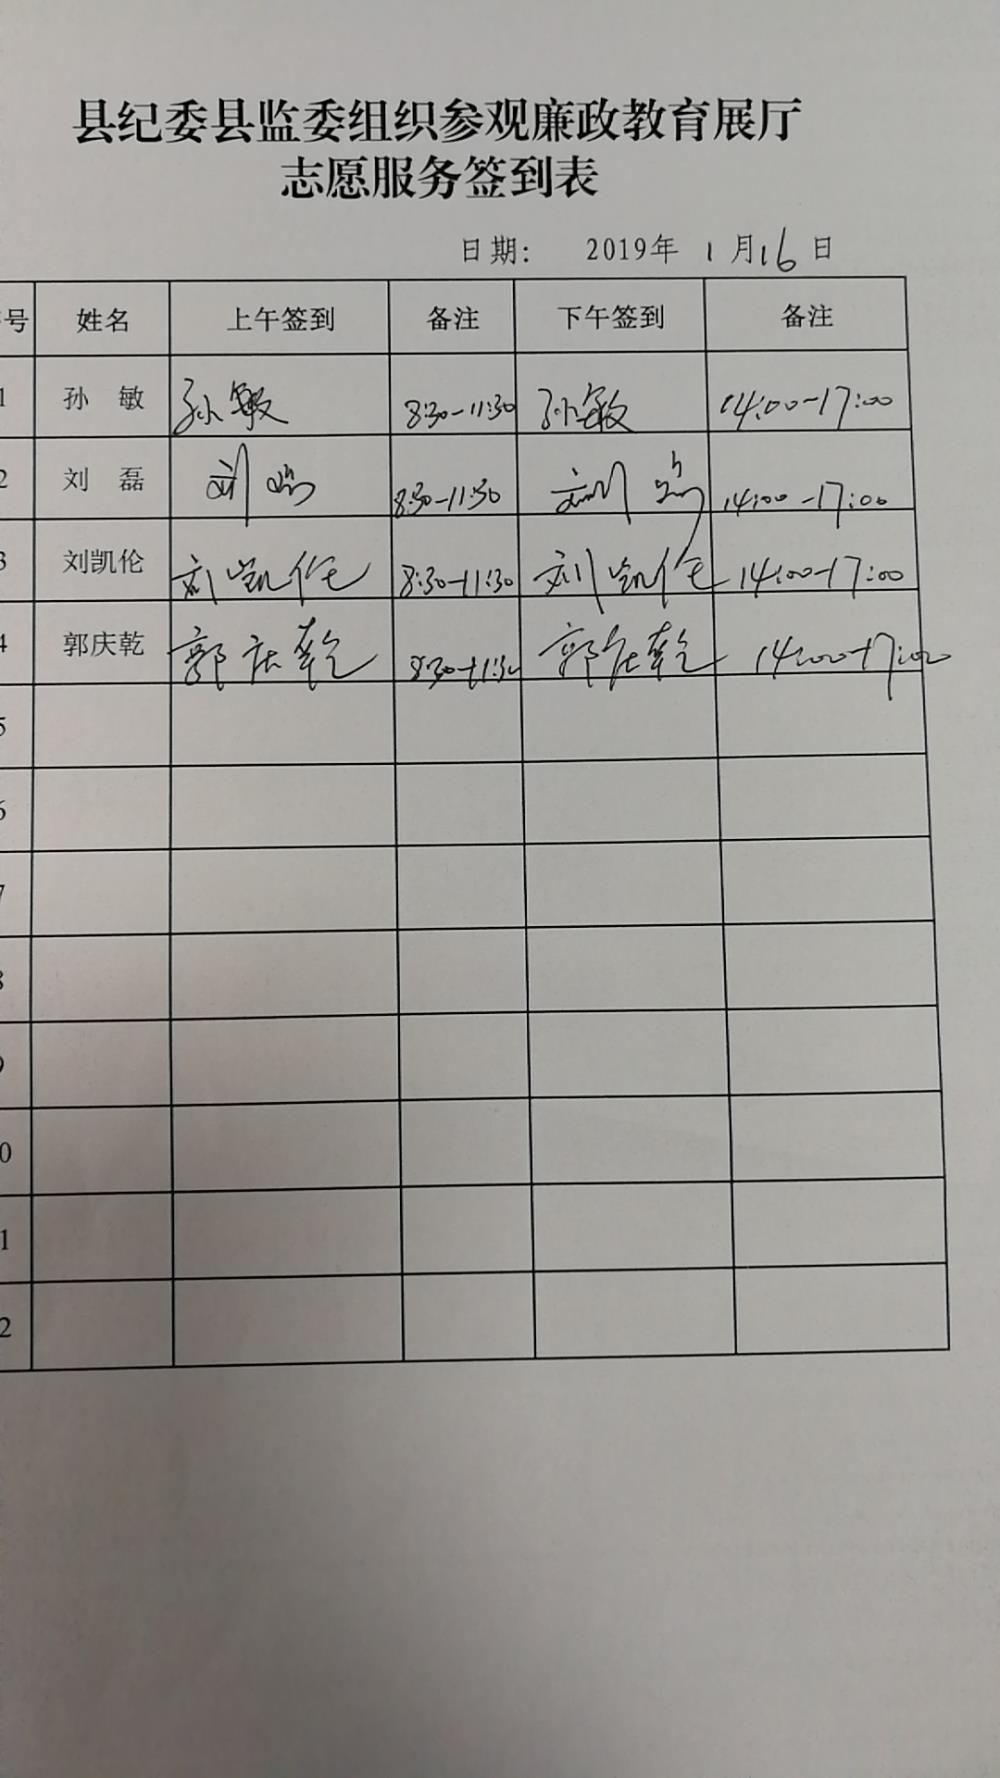 县纪委县监委组织参观廉政教育展厅
志愿服务签到表
日期： 2019年 1月16日
号 姓名 上午签到 备注 下午签到 备注
1 孙 敏 孙敏 8:30-11:30 孙敏 14:00-17:00
2 刘 磊 刘磊 8:30-11:30 刘磊 14:00-17:00
3 刘凯伦 刘凯伦 8:30-11:30 刘凯伦 14:00-17:00
4 郭庆乾 郭庆乾 8:30-11:30 郭庆乾 14:00-17:00
5
6
7
8
9
0
1
2